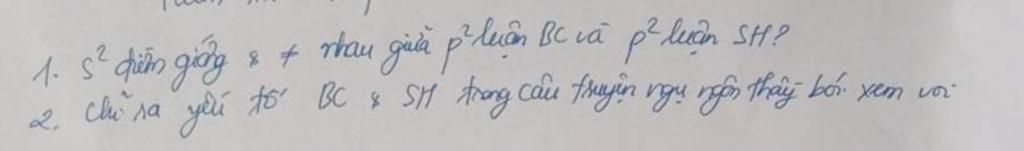 1. S² điểm giống & ≠ nhau giữa p² luận BC và p² luận SH?
2. Chỉ ra yếu tố BC & SH trong câu truyện ngụ ngôn thầy bói xem voi